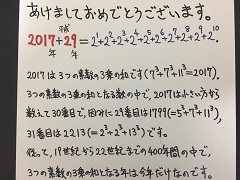 あけましておめでとうございます。
平成
2017+29=2¹+2²+2³+2⁴+2⁵+2⁶+2⁷+2⁸+2⁹+2¹⁰.
年 年
2017は3つの素数の3乗の和です(7³+7³+11³=2017).
3つの素数の3乗の和となる数の中で、2017は小さい方から
数えて30番目で、因みに29番目は1799(=5³+7³+11³),
31番目は2213(=2³+2³+13³)です。
従って、19世紀から22世紀までの400年間の中で、
3つの素数の3乗の和となる年は今年だけなのです。